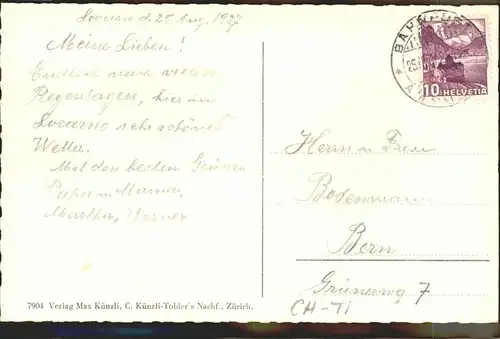 Locarno d. 28 Aug. 1937
Meine Lieben!
Endlich nach vielen
Regentagen, hier in
Locarno sehr schönes
Wetter.
Mit den besten Grüssen
Papa u. Mama.
Martha, Werner
BAHNPOST
10 HELVETIA
Herrn u. Frau
Bodenmann
Bern
Grünerweg 7
CH-TI
7904 Verlag Max Künzli, C. Künzli-Tobler's Nachf., Zürich.